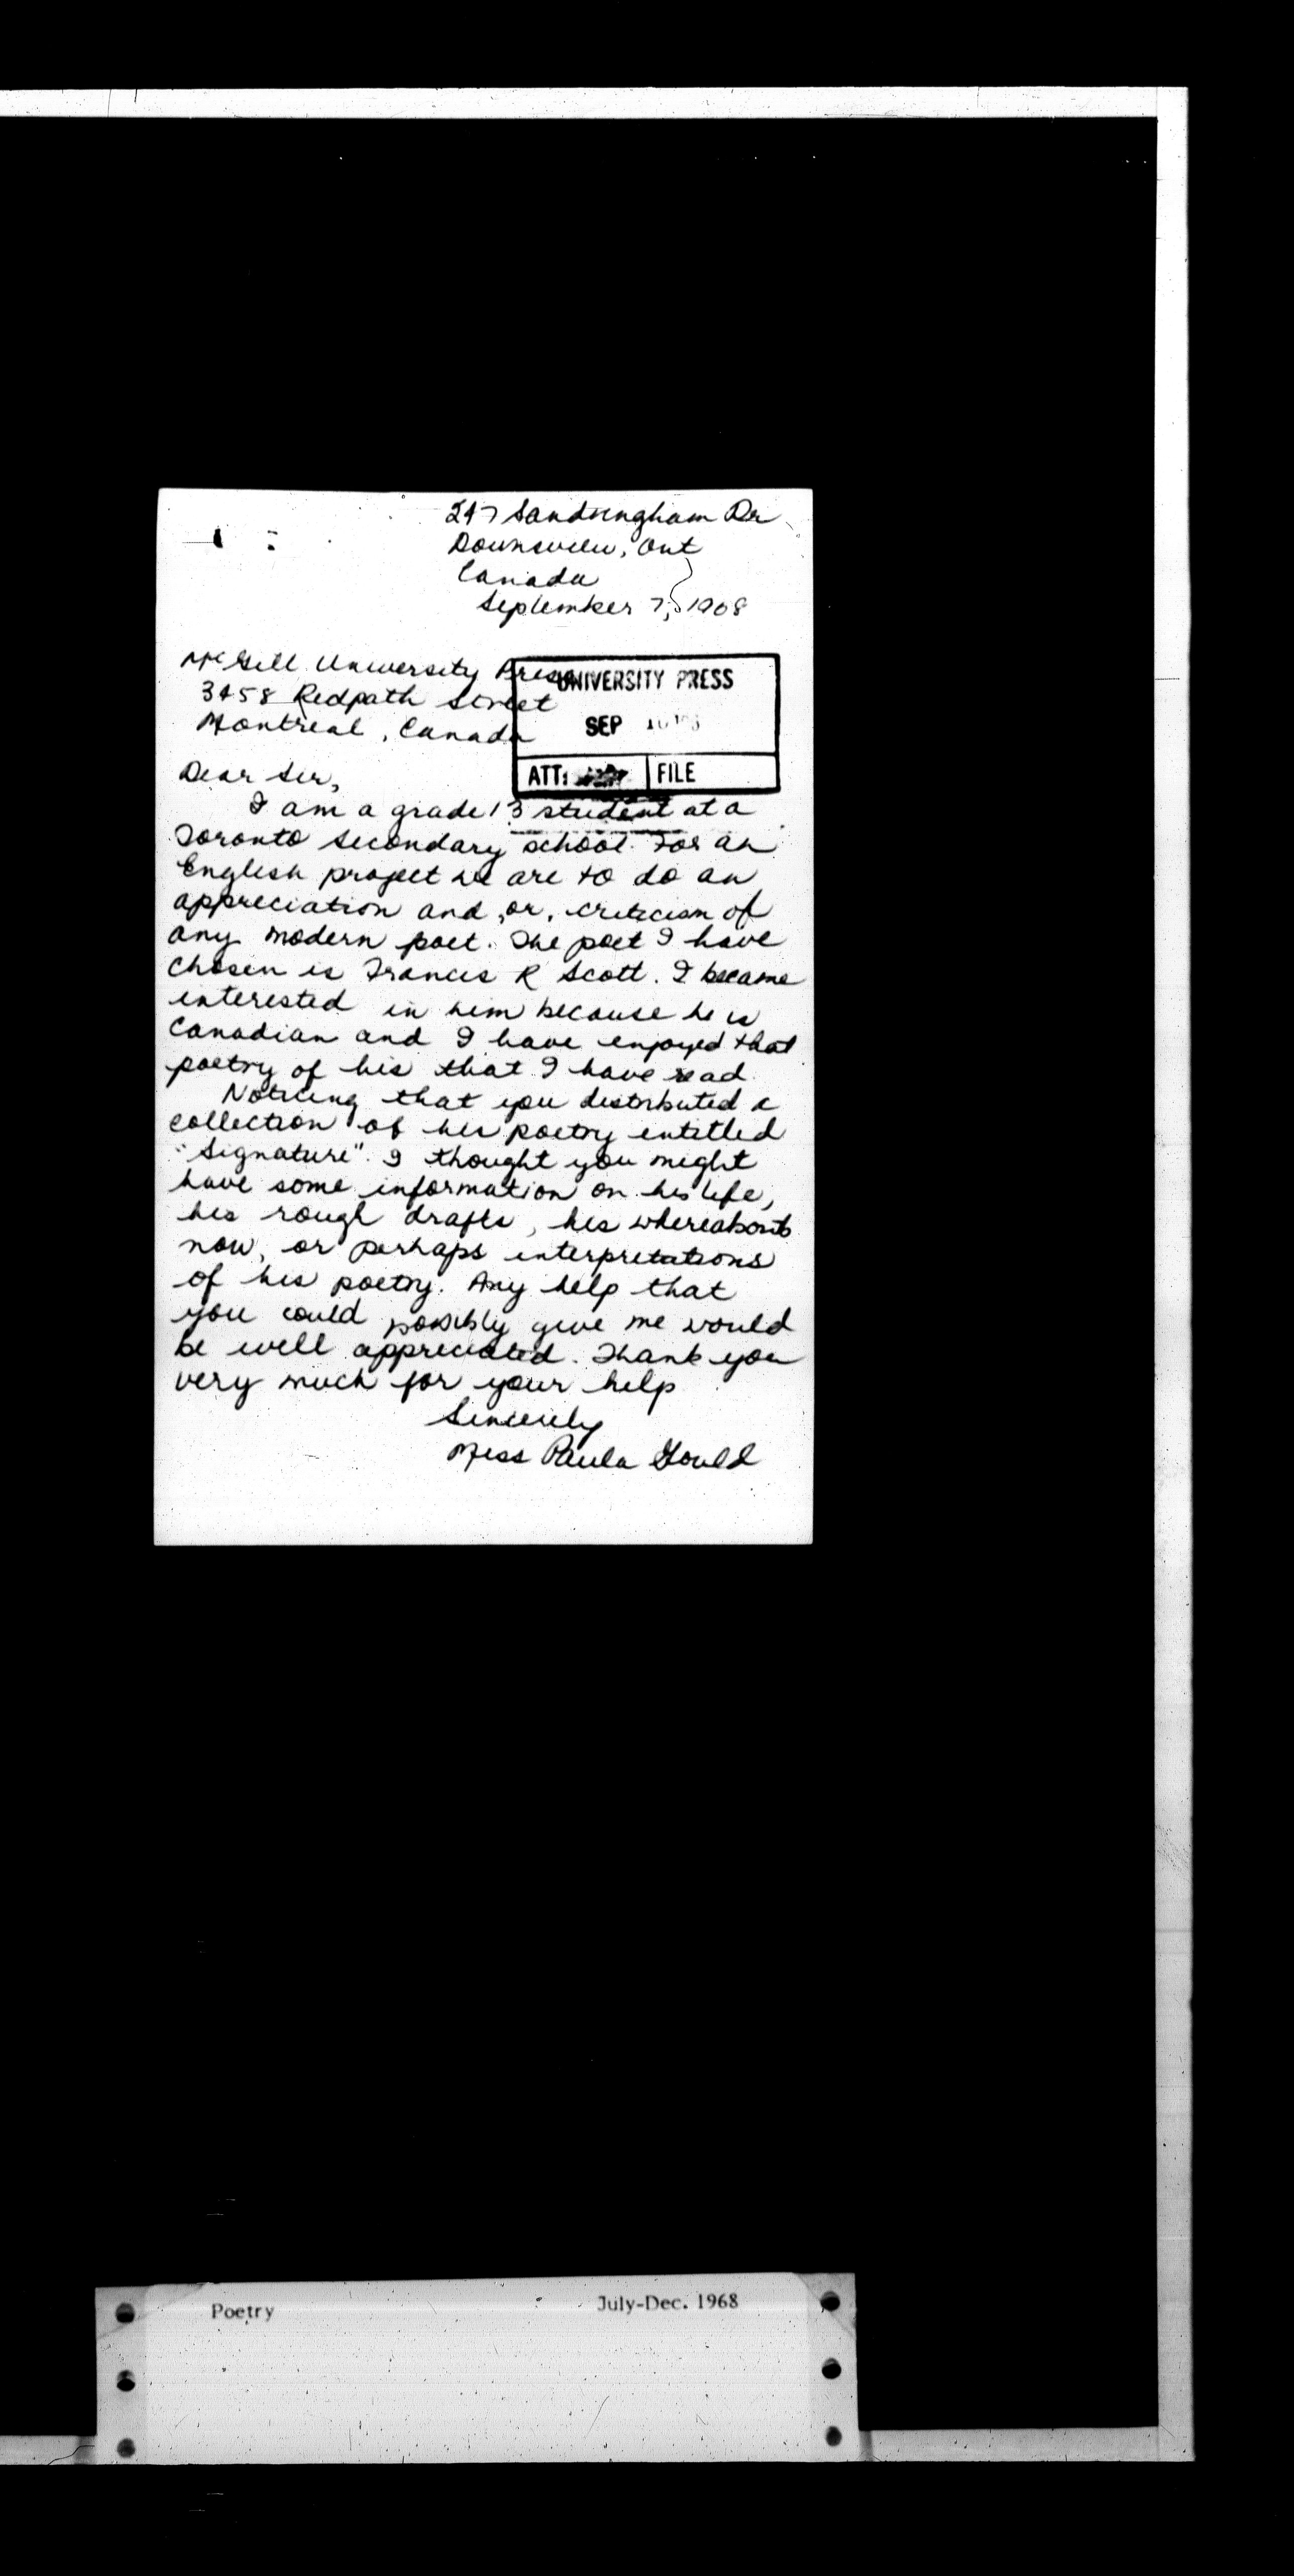 247 Sandringham Dr
Downsview, Ont
Canada
September 7, 1968
McGill University Press
3458 Redpath Street
Montreal, Canada
UNIVERSITY PRESS
SEP
ATT: FILE
Dear Sir,
I am a grade 13 student at a
Toronto secondary school. For an
English project we are to do an
appreciation and, or, criticism of
any modern poet. The poet I have
chosen is Francis R Scott. I became
interested in him because he is
Canadian and I have enjoyed that
poetry of his that I have read.
Noticing that you distributed a
collection of his poetry entitled
"Signature". I thought you might
have some information on his life,
his rough drafts, his whereabouts
now, or perhaps interpretations
of his poetry. Any help that
you could possibly give me would
be well appreciated. Thank you
very much for your help
Sincerely
Miss Paula Gould
Poetry July-Dec. 1968